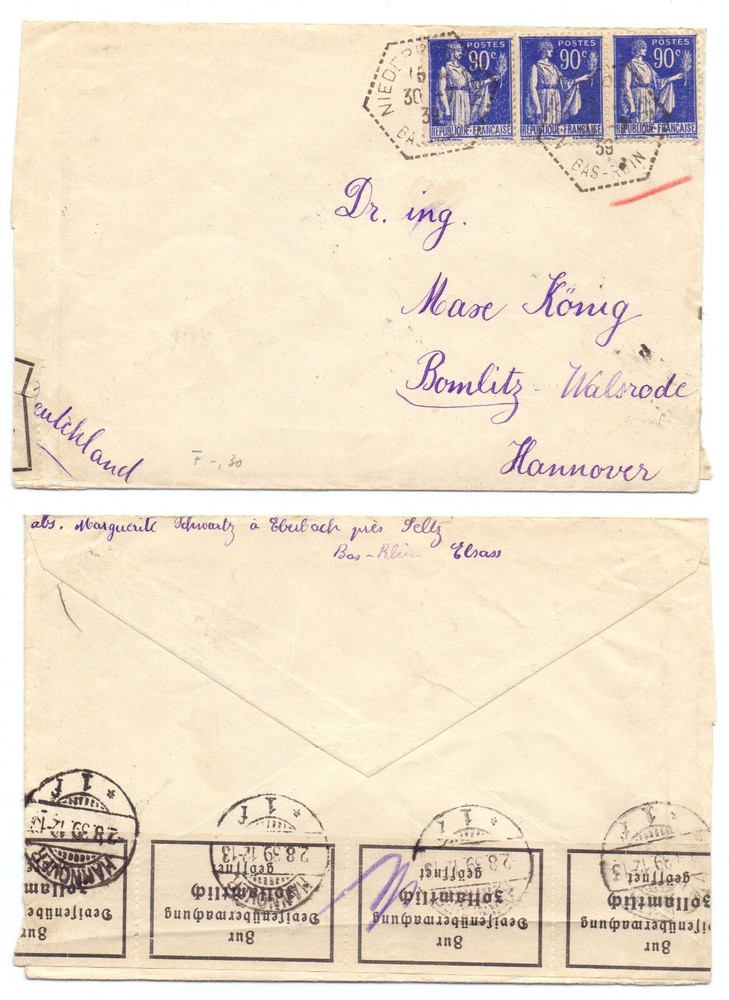 NIEDER
15
30
39
BAS-
POSTES
90c
REPUBLIQUE-FRANÇAISE
POSTES
90c
REPUBLIQUE-FRANÇAISE
POSTES
90c
REPUBLIQUE-FRANÇAISE
39
BAS-RHIN
Dr. ing.
Maxe König
Bomlitz - Walsrode
Hannover
Deutchland
F -,30
abs. Marguerite Schwartz à Eberbach près Seltz
Bas-Rhin Elsass
* 1 f
2.8.39.12-13
HANNOVER
* 1 f
2.8.39.12-13
HANNOVER
* 1 f
2.8.39.12-13
1 f
Zur
Devisenüberwachung
Zollamtlich
geöffnet
Zur
Devisenüberwachung
Zollamtlich
geöffnet
Zur
Devisenüberwachung
Zollamtlich
geöffnet
Zur
Devisenüberwachung
Zollamtlich
geöffnet